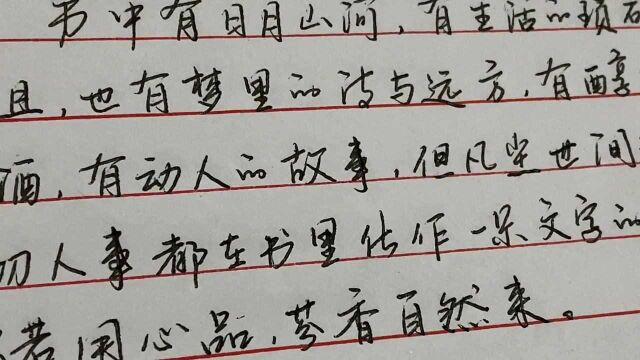 书中有日月山河,有生活的琐
且,也有梦里的诗与远方,有醇
酒,有动人的故事,但凡尘世间
切人事都在书里化作一朵文字的
若用心品,芬香自然来。